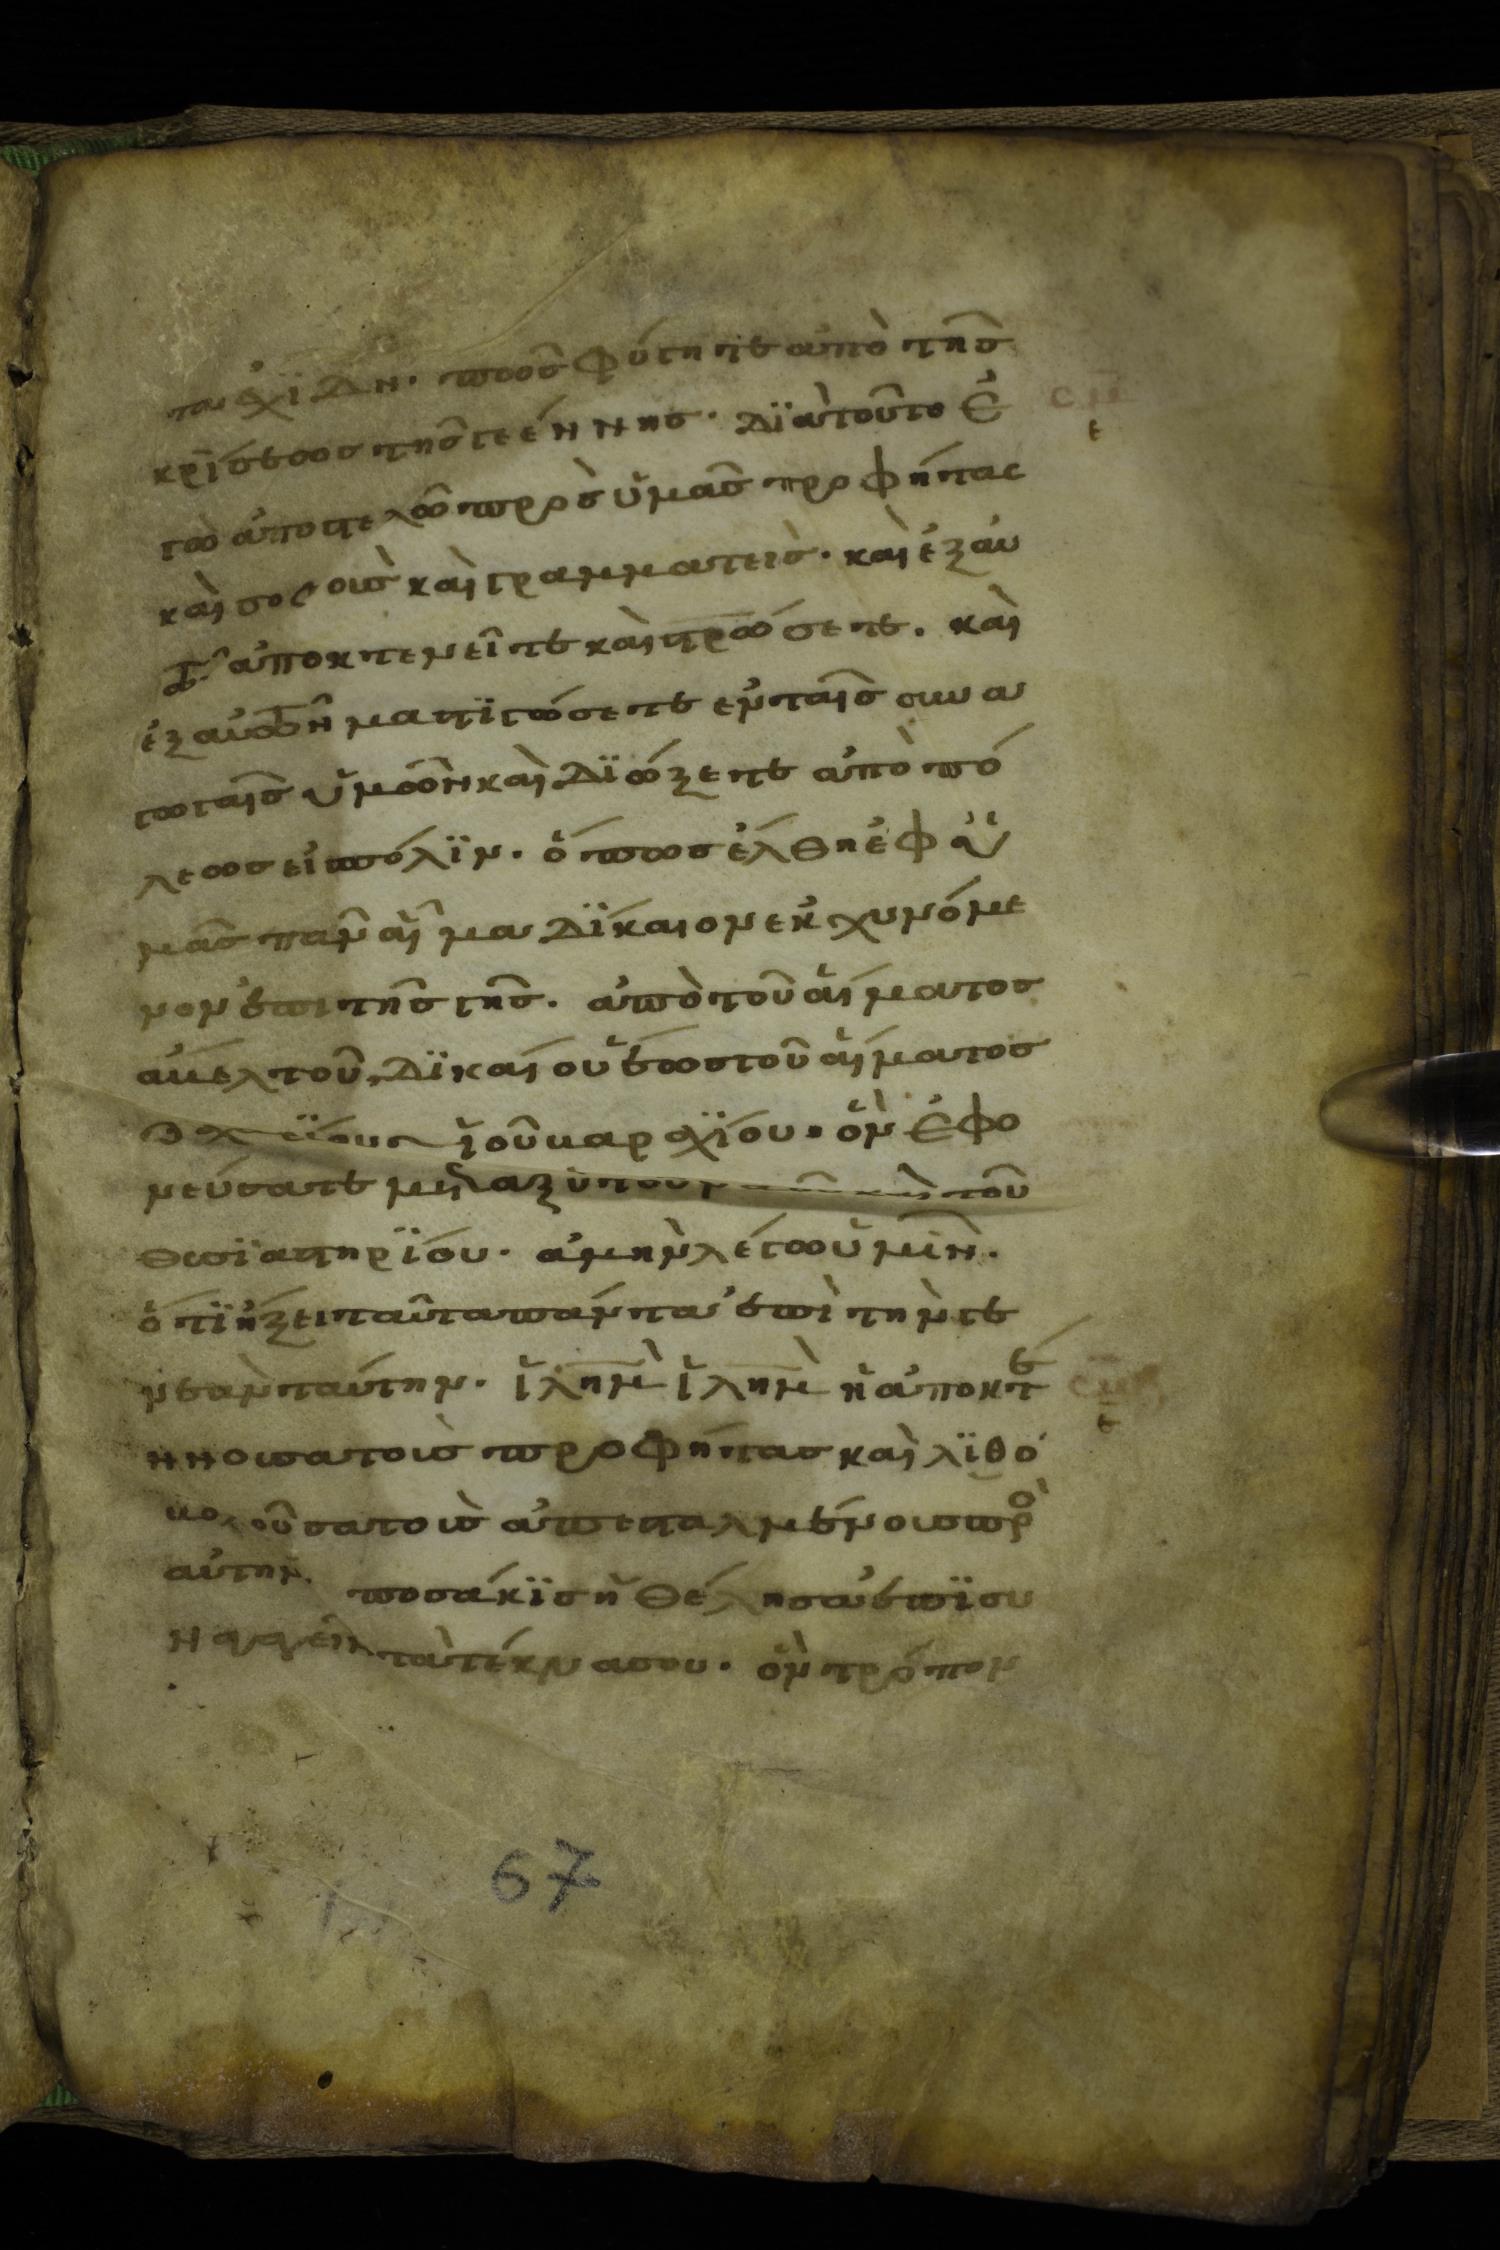 τα ἐχϊδν· πωσ φύγητε ἀπὸ τῆσ
κρίσεωσ τησ γεέννησ· δϊὰτοῦτο ἐ
γὼ ἀποστελῶ πρὸσ ὑμᾶσ προφήτας
καὶ σοφουσ καὶ γραμματεισ· καὶ ἐξ αὐ
τῶν ἀποκτενεῖτε καὶ στρώσετε. καὶ
ἐξ αὐτῶν μαστϊγώσετε ἐν ταῖσ συνα
γωγαῖσ ὑμῶν καὶ δϊώξετε ἀπὸ πό
λεωσ εἰ πόλϊν· ὅπωσ ἔλθη ἐφ ὑ
μᾶσ πᾶν αἷμα δϊκαιον ἐκχυνόμε
νον ἐπι τῆσ γῆσ. ἀπὸ τοῦ αἵματοσ
ἀβελ τοῦ δϊκαίου ἕωσ τοῦ αἵματοσ
ζαχαρϊου ϊοῦ βαραχϊου· ὃν ἐφο
νεύσατε μεταξὺ τοῦ ναοῦ καὶ τοῦ
θυσϊαστηρϊου· ἀμὴν λέγω ὑμῖν.
ὅτϊ ἥξει ταῦτα πάντα ἐπὶ τὴν γε
νεὰν ταύτην. ϊλημ ϊλημ ἡ ἀποκτέ
ννουσα τουσ προφήτασ καὶ λϊθο
βολοῦσα τουσ ἀπεσταλμένουσ πρὸ
αὐτην. ποσάκϊσ ἠθέλησα ἐπϊσυ
ναγαγεῖν τὰ τέκνα σου· ὃν τρόπον
σμ
ε
σμ
στ
67